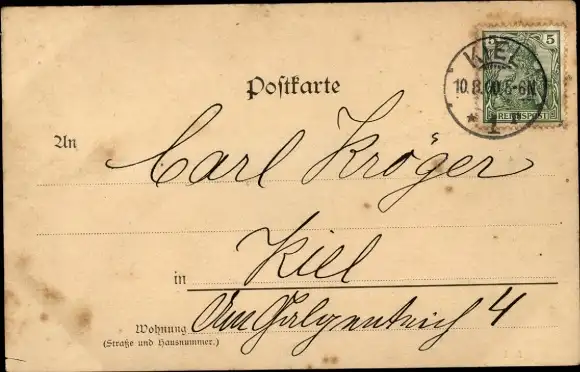 5 5
KIEL
10.8.00.5-6N
* 1 *
REICHSPOST
Postkarte
An Carl Kröger
in Kiel
Wohnung Am Galgenteich 4
(Straße und Hausnummer.)